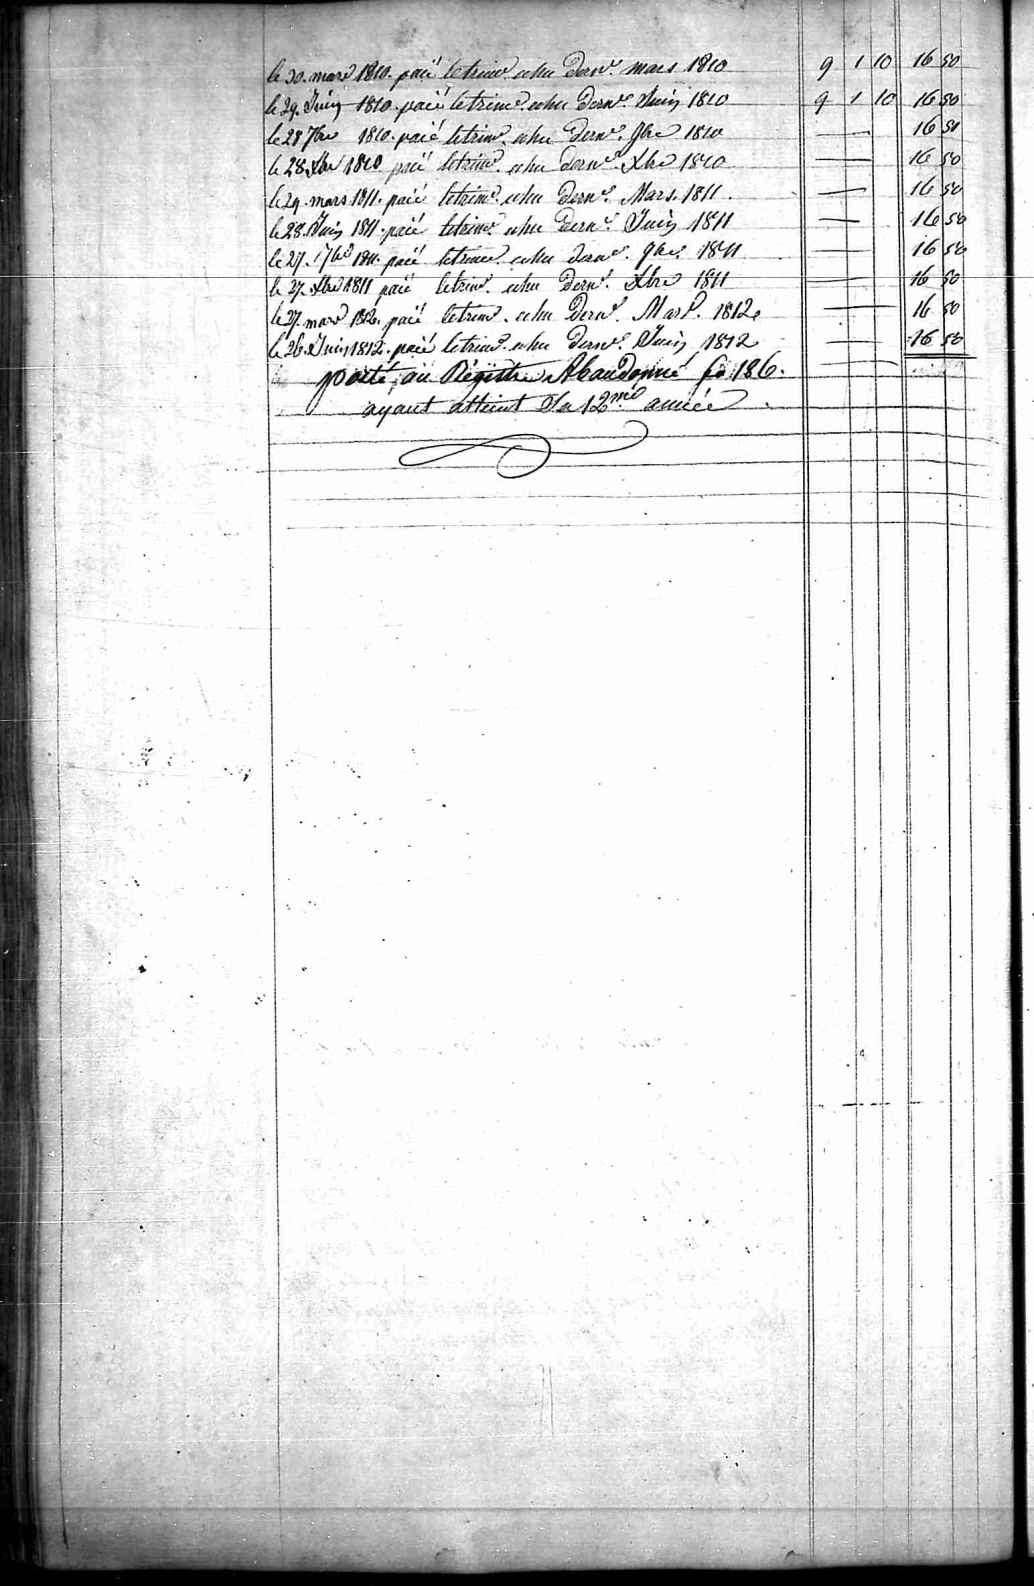 le 30. mars 1810. paié le trimre echu dernr. mars 1810 9 1 10 16 50
le 29. Juin 1810. paié le trimre echu dernr. Juin 1810 9 1 10 16 50
le 28 7bre 1810. paié le trimre. echu dernr. 7bre 1810 — 16 50
le 28. Xbre 1810 paié le trimre. echu dernr. Xbre 1810 — 16 50
le 29. mars 1811. paié le trimre. echu dernr. Mars. 1811. — 16 50
le 28. Juin 1811. paié le trimre echu dernr. Juin 1811 — 16 50
le 27. 7bre 1811. paié le trimre echu dernr. 7bre. 1811 — 16 50
le 27. Xbre 1811 paié le trimre. echu dernr. Xbre 1811 — 16 50
le 27. mars 1812. paié le trimre. echu dernr. Mars. 1812. — 16 50
le 26. Juin 1812. paié le trimre. echu dernr. Juin 1812 — 16 50
porté au Régistre Abandonné fo 186.
ayant atteint sa 12me. année